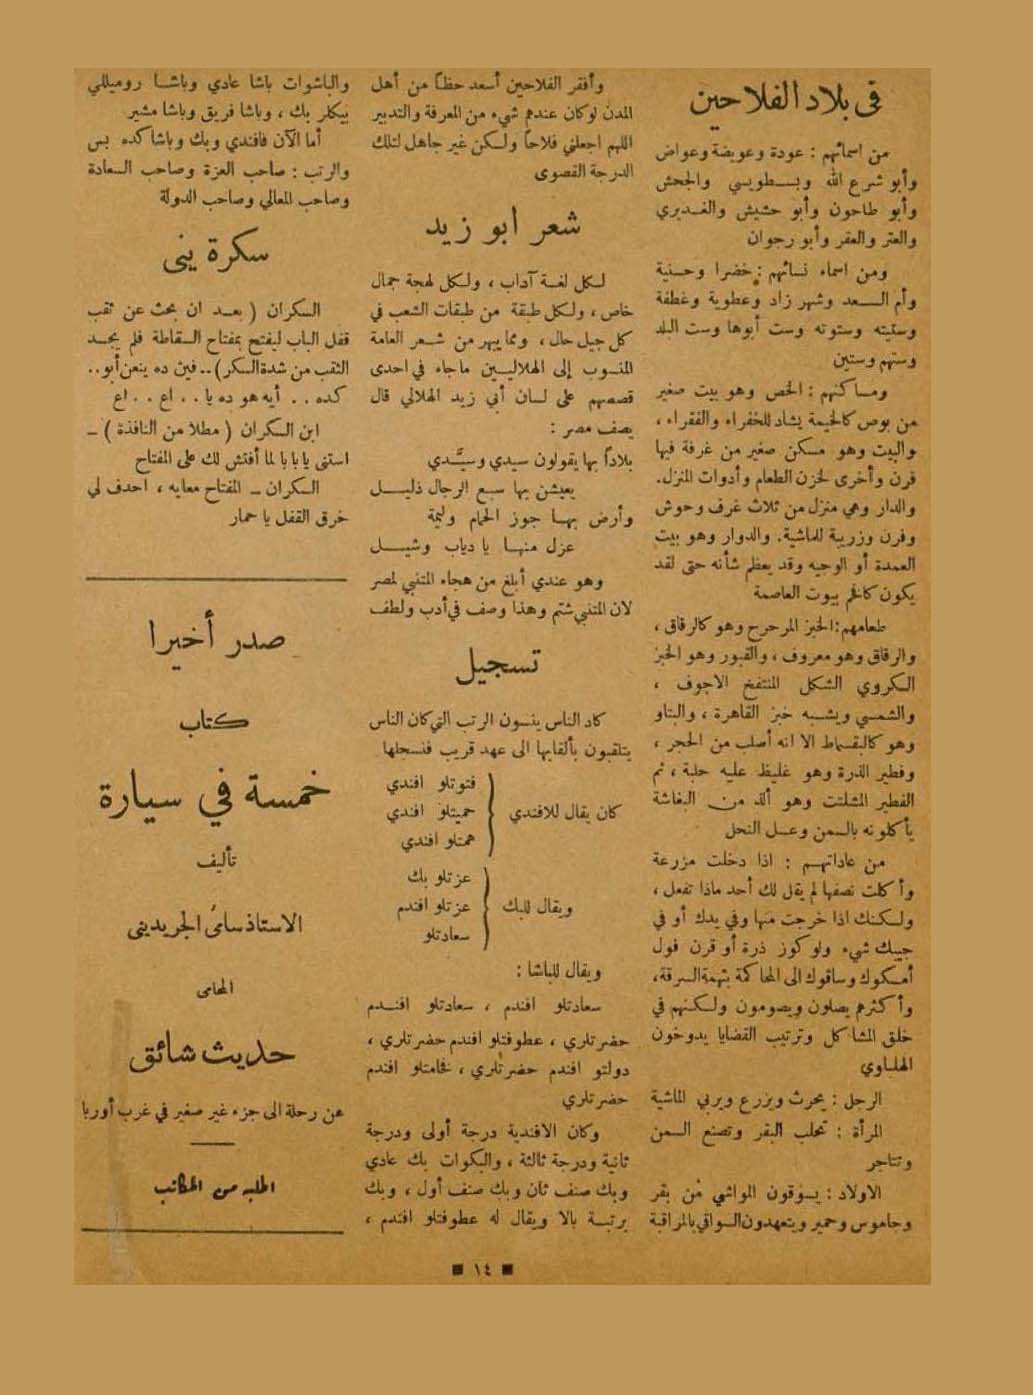 في بلاد الفلاحين
من اسمائهم : عودة وعويضة وعواض
وأبو شرع الله وبسطويسي والجحش
وأبو طاحون وأبو حشيش والغديري
والعتر والعقر وأبو رجوان
ومن اسماء نسائهم : خضرا وحسنية
وأم السعد وشهر زاد وعطوية وغطفة
وستيته وستوته وست أبوها وست البلد
وستهم وستين
ومساكنهم : الخص وهو بيت صغير
من بوص كالخيمة يشاد للخفراء والفقراء ،
والبيت وهو مسكن صغير من غرفة فيها
فرن وأخرى لخزن الطعام وأدوات المنزل.
والدار وهي منزل من ثلاث غرف وحوش
وفرن وزريبة للماشية. والدوار وهو بيت
العمدة أو الوجيه وقد يعظم شأنه حتى لقد
يكون كافخم بيوت العاصمة
طعامهم : الخبز المرحرح وهو كالرقاق ،
والرقاق وهو معروف ، والقبور وهو الخبز
الكروي الشكل المنتفخ الاجوف ،
والشمسي ويشبه خبز القاهرة ، والبتاو
وهو كالبقسماط الا انه أصلب من الحجر ،
وفطير الذرة وهو غليظ عليه حلبة ، ثم
الفطير المشلتت وهو ألذ من البغاشة
يأكلونه بالسمن وعسل النحل
من عاداتهم : اذا دخلت مزرعة
وأكلت نصفها لم يقل لك أحد ماذا تفعل ،
ولكنك اذا خرجت منها وفي يدك أو في
جيبك شيء ولو كوز ذرة أو قرن فول
أمسكوك وساقوك الى المحاكمة بتهمة السرقة،
وأكثرهم يصلون ويصومون ولكنهم في
خلق المشاكل وترتيب القضايا يدوخون
الهلباوي
الرجل : يحرث ويزرع ويربي الماشية
المرأة : تحلب البقر وتصنع السمن
وتتاجر
الاولاد : يسوقون المواشي من بقر
وجاموس وحمير ويتعهدون السواقي بالمراقبة
وأفقر الفلاحين أسعد حظاً من أهل
المدن لو كان عندهم شيء من المعرفة والتدبير
اللهم اجعلني فلاحاً ولكن غير جاهل لتلك
الدرجة القصوى
شعر ابو زيد
لكل لغة آداب ، ولكل لهجة جمال
خاص ، ولكل طبقة من طبقات الشعب في
كل جيل حال ، ومما يبهر من شعر العامة
المنسوب إلى الهلاليين ما جاء في احدى
قصصهم على لسان أبي زيد الهلالي قال
يصف مصر :
بلاداً بها يقولون سيدي وسيَّدي
يعيشن بها سبع الرجال ذليل
وأرض بها جوز الحمام وليمة
عزل منها يا دياب وشيل
وهو عندي أبلغ من هجاء المتنبي لمصر
لان المتنبي شتم وهذا وصف في أدب ولطف
تسجيل
كاد الناس ينسون الرتب التي كان الناس
يتلقبون بألقابها الى عهد قريب فنسجلها
كان يقال للافندي
فتوتلو افندي
حميتلو افندي
همتلو افندي
ويقال للبك
عزتلو بك
عزتلو افندم
سعادتلو
ويقال للباشا :
سعادتلو افندم ، سعادتلو افندم
حضرتلري ، عطوفتلو افندم حضرتلري ،
دولتو افندم حضرتلري ، فخامتلو افندم
حضرتلري
وكان الافندية درجة أولى ودرجة
ثانية ودرجة ثالثة ، والبكوات بك عادي
وبك صنف ثان وبك صنف أول ، وبك
برتبة بالا ويقال له عطوفتلو افندم ،
والباشوات باشا عادي وباشا روميللي
بيكلر بك ، وباشا فريق وباشا مشير
أما الآن فافندي وبك وباشا كده بس
والرتب : صاحب العزة وصاحب السعادة
وصاحب المعالي وصاحب الدولة
سكرة يني
السكران ( بعد ان بحث عن ثقب
قفل الباب ليفتح بمفتاح السقاطة فلم يجد
الثقب من شدة السكر ) .. فين ده ينعن أبو ..
كده . . أيه هو ده يا . . اع . . اع
ابن السكران ( مطلا من النافذة ) -
استنى يا بابا لما أفتش لك على المفتاح
السكران - المفتاح معايه ، احدف لي
خرق القفل يا حمار
صدر أخيرا
كتاب
خمسة في سيارة
تأليف
الاستاذ سامى الجريدينى
المحامى
حديث شائق
عن رحلة الى جزء غير صغير في غرب أوربا
اطلبه من المكاتب
١٤